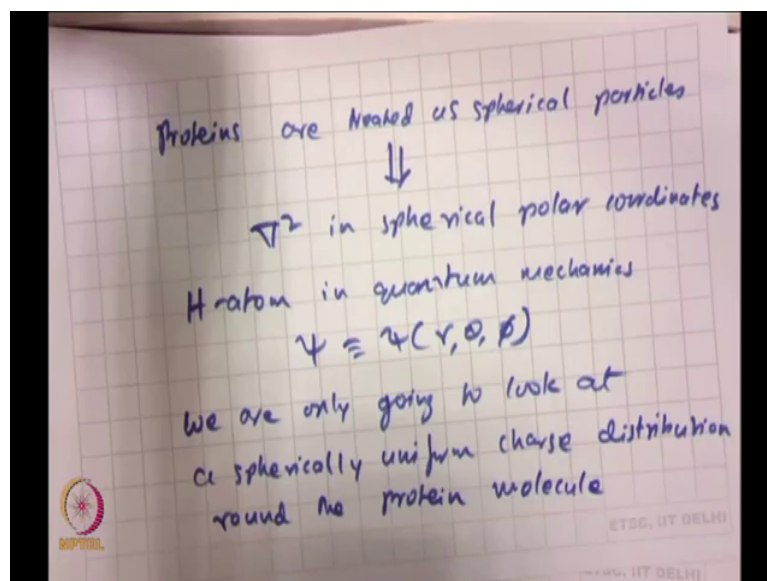 Proteins are treated as spherical particles
⇓
∇² in spherical polar coordinates
H-atom in quantum mechanics
Ψ ≡ Ψ(r, θ, φ)
We are only going to look at
a spherically uniform charge distribution
round the protein molecule
ETSC, IIT DELHI
ETSC, IIT DELHI
NPTEL